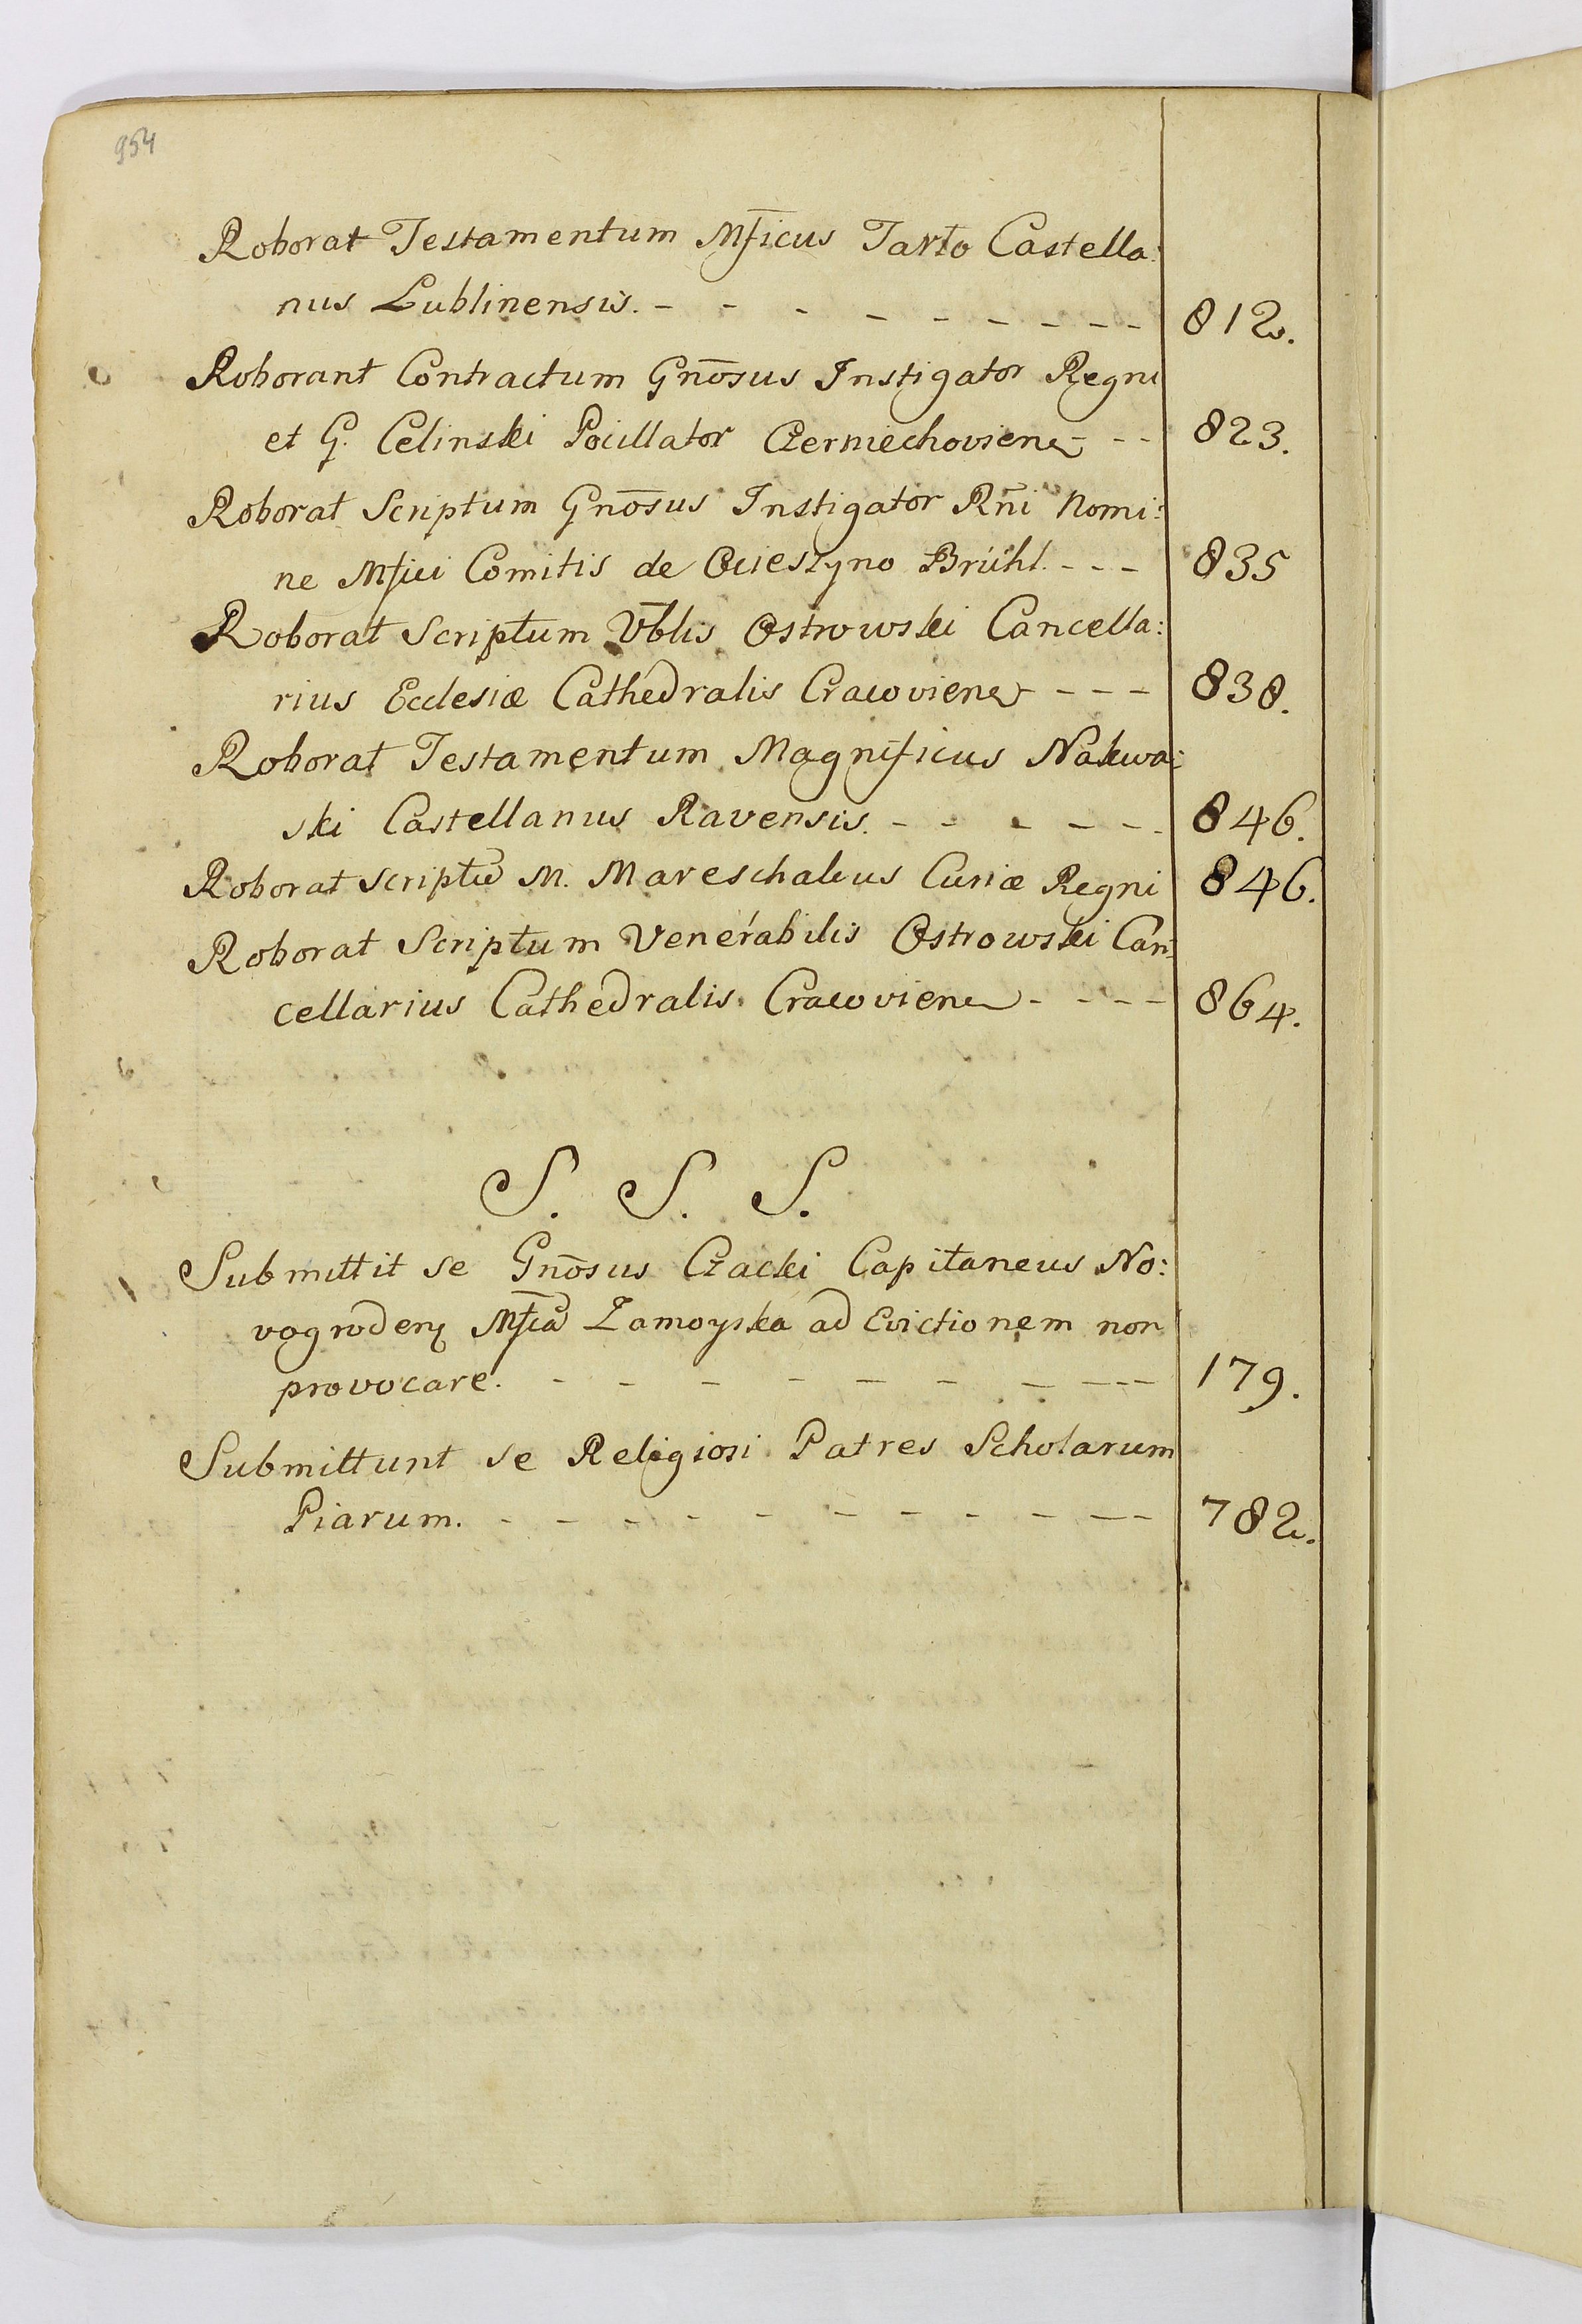 954
Roborat Testamentum Mficus Tarło Castella:
nus Lublinensis. - - - - - - - - - 812.
Roborant Contractum Gnōsus Instigator Regni
et G. Celinski Pocillator Czerniechoviens - - 823.
Roborat Scriptum Gnōsus Instigator Rn̄i Nomi:
ne Mfici Comitis de Ocieszyno Brühl. - - - 835
Roborat Scriptum Vb̄lis Ostrowski Cancella:
rius Ecclesiæ Cathedralis Cracoviens - - - 838.
Roborat Testamentum Magnificus Nakwa:
ski Castellanus Ravensis. - - - - - - 846.
Roborat Scriptū M. Mareschalcus Curiæ Regni 846.
Roborat Scriptum Venerabilis Ostrowski Can:
cellarius Cathedralis Cracoviens - - - - 864.
S. S. S.
Submittit se Gnōsus Czacki Capitaneus No:
vogrodens Mficā Zamoyska ad Evictionem non
provocare. - - - - - - - - - - - 179.
Submittunt se Religiosi Patres Scholarum
Piarum. - - - - - - - - - - - 782.